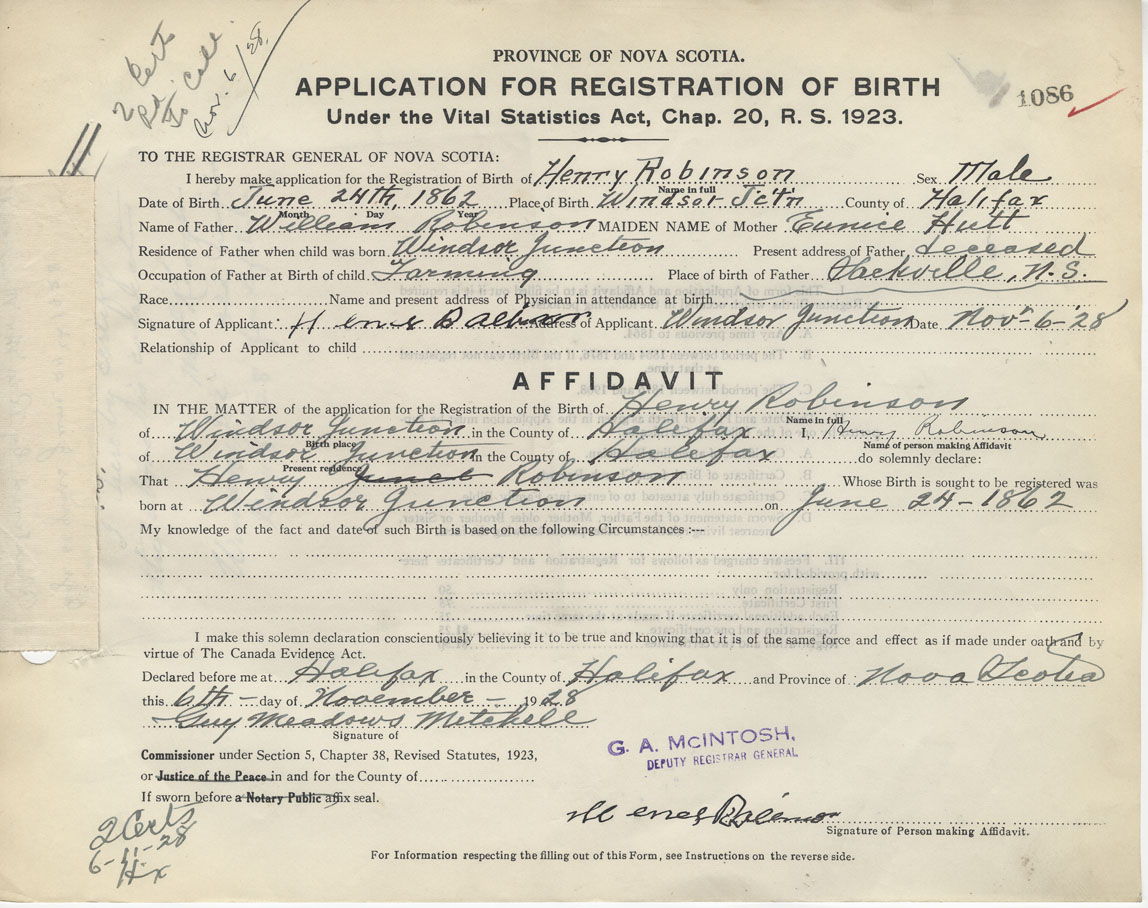 2 Certs
to Call
Nov. 6/28.
PROVINCE OF NOVA SCOTIA.
APPLICATION FOR REGISTRATION OF BIRTH
1086
Under the Vital Statistics Act, Chap. 20, R. S. 1923.
TO THE REGISTRAR GENERAL OF NOVA SCOTIA:
I hereby make application for the Registration of Birth of Henry Robinson Sex Male
Name in full
Date of Birth June 24th, 1862 Place of Birth Windsor Jctn County of Halifax
Month Day Year
Name of Father William Robinson MAIDEN NAME of Mother Eunice Hutt
Residence of Father when child was born Windsor Junction Present address of Father deceased
Occupation of Father at Birth of child Farming Place of birth of Father Sackville, N.S.
Race Name and present address of Physician in attendance at birth
Signature of Applicant Address of Applicant Windsor Junction Date Nov- 6-28
Relationship of Applicant to child
AFFIDAVIT
IN THE MATTER of the application for the Registration of the Birth of Henry Robinson
Name in full
of Windsor Junction in the County of Halifax I, Henry Robinson
Birth place Name of person making Affidavit
of Windsor Junction in the County of Halifax do solemnly declare:
Present residence
That Henry Robinson Whose Birth is sought to be registered was
born at Windsor Junction on June 24-1862
My knowledge of the fact and date of such Birth is based on the following Circumstances :--
I make this solemn declaration conscientiously believing it to be true and knowing that it is of the same force and effect as if made under oath and by
virtue of The Canada Evidence Act.
Declared before me at Halifax in the County of Halifax and Province of Nova Scotia
this 6th day of November 1928
Guy Meadows Mitchell
Signature of
Commissioner under Section 5, Chapter 38, Revised Statutes, 1923,
or Justice of the Peace in and for the County of
If sworn before a Notary Public affix seal.
G. A. McINTOSH,
DEPUTY REGISTRAR GENERAL
Signature of Person making Affidavit.
2 Certs
6-11-28
Hx
For Information respecting the filling out of this Form, see Instructions on the reverse side.